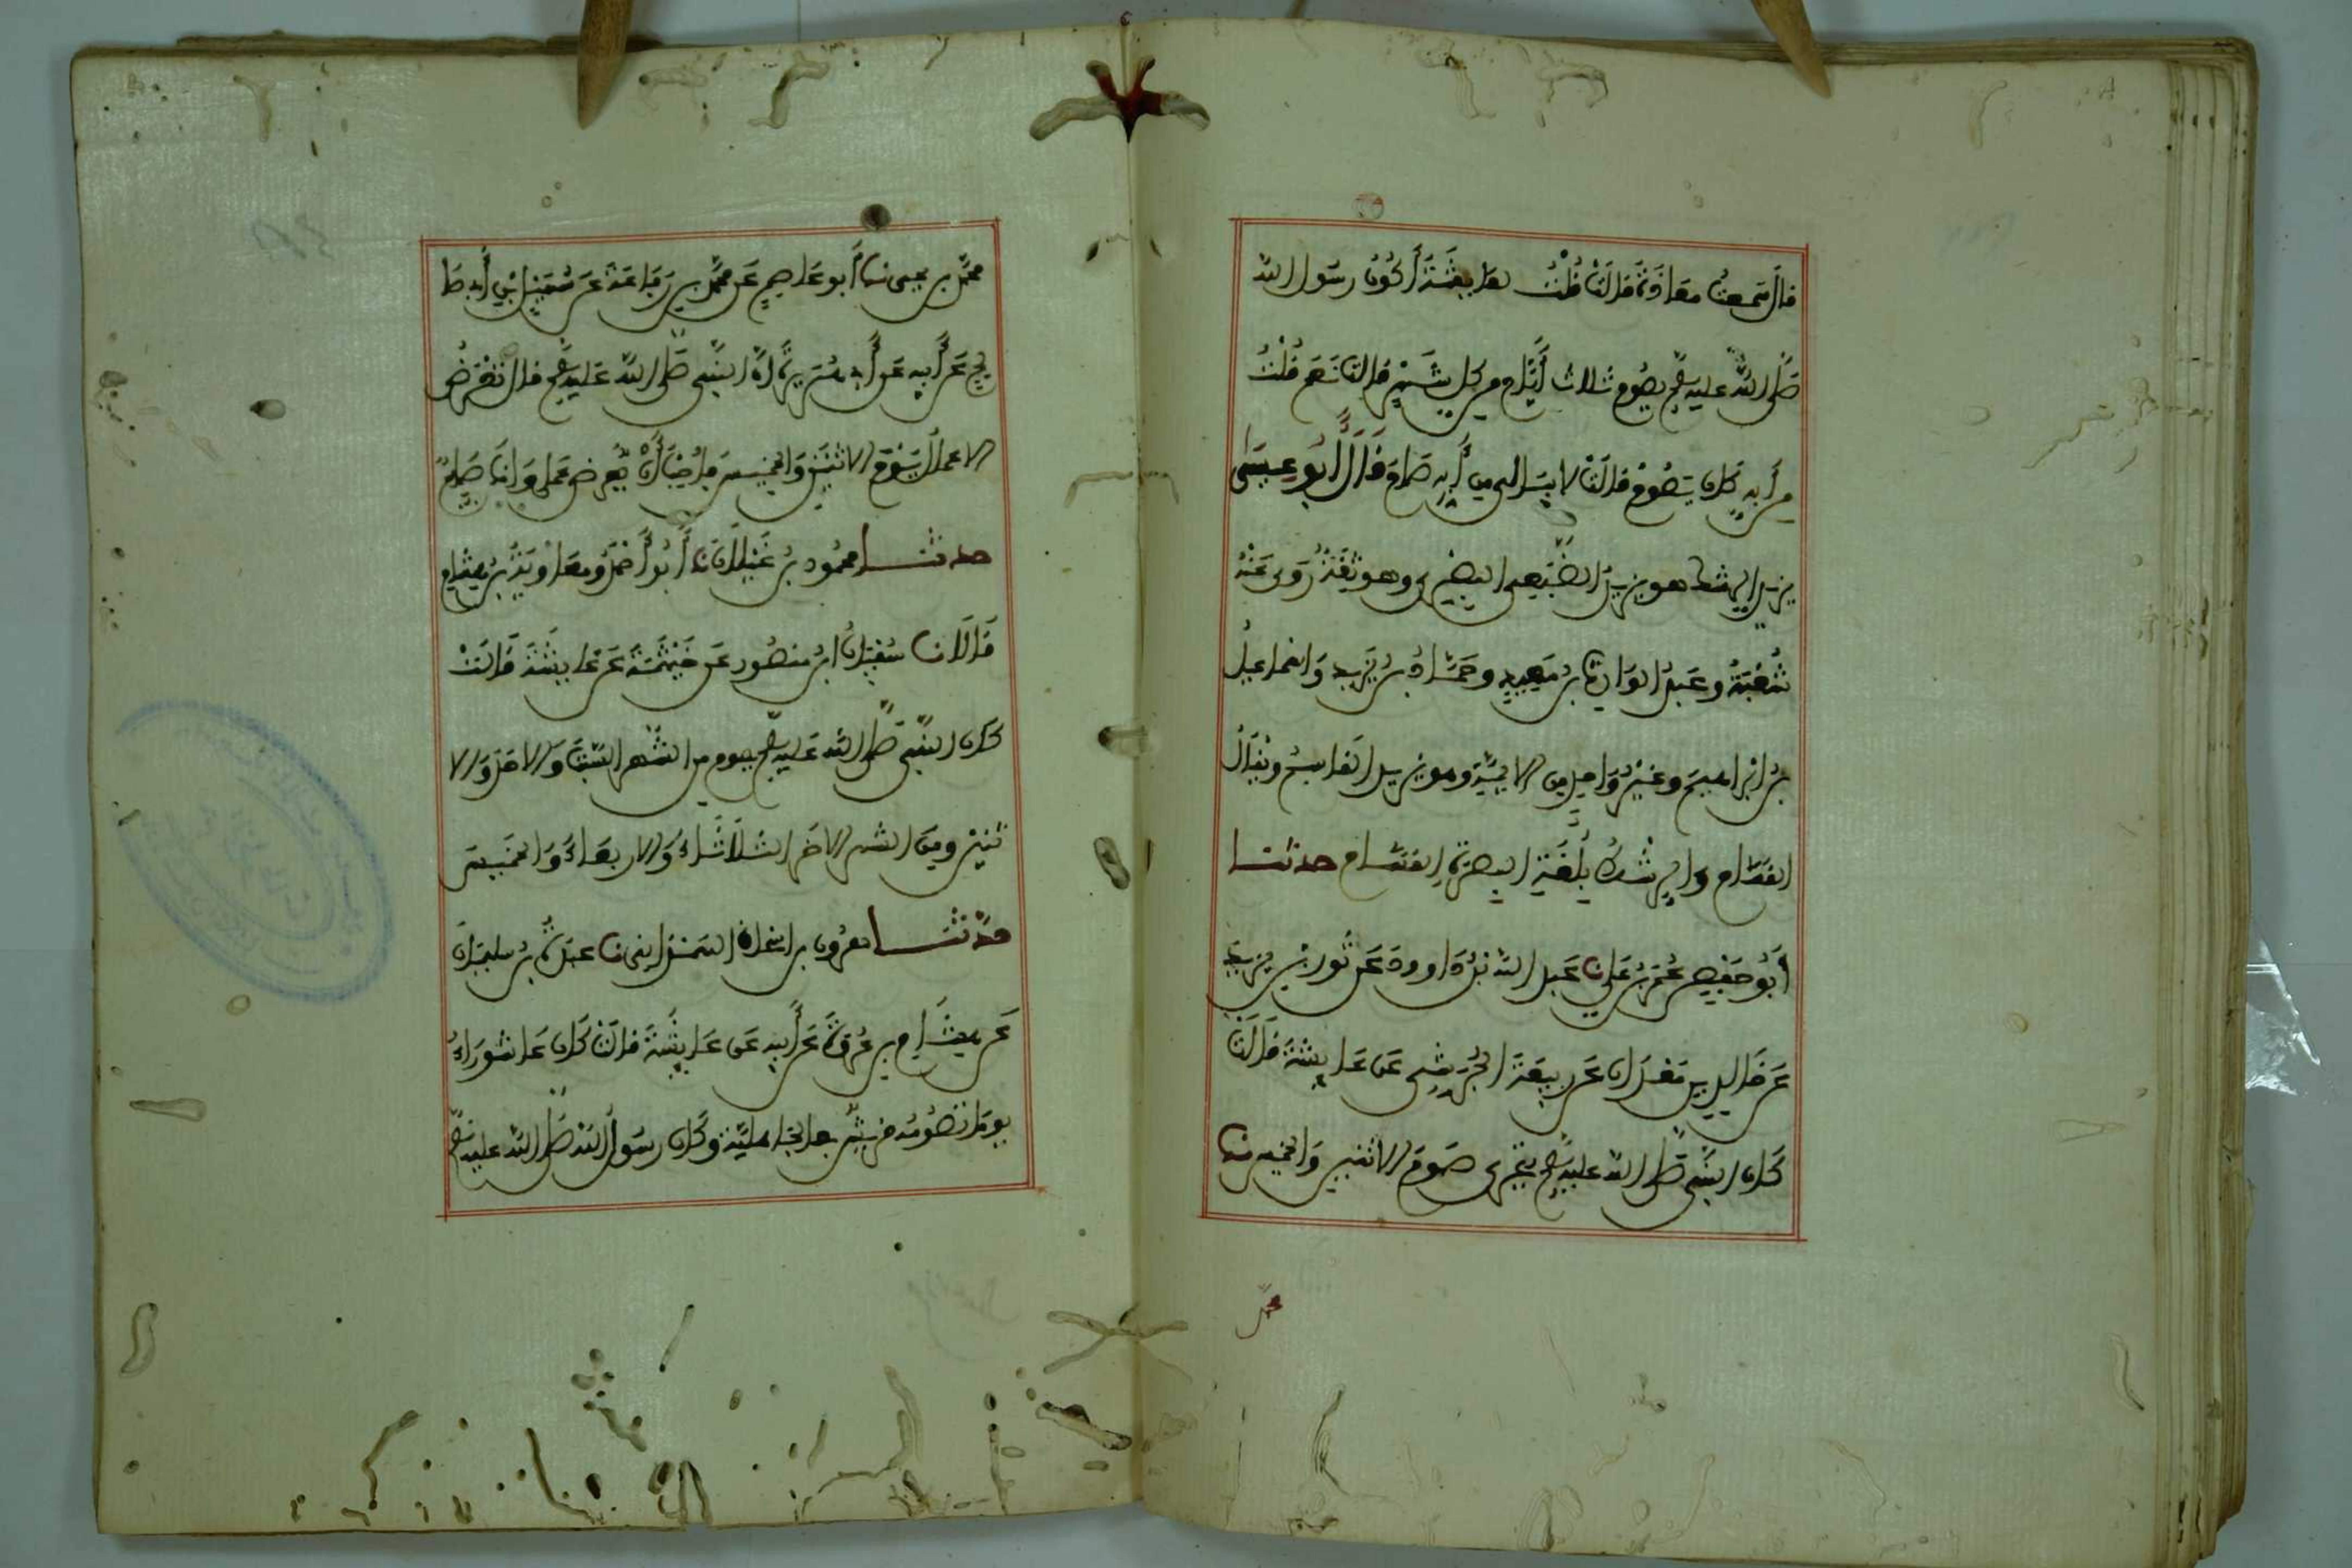 قال سمعت معاذة قالت قلت لعايشة أكان رسول الله
صلى الله عليه وسلم يصوم ثلاث أيام من كل شهر قالت نعم قلت
من أيه كان يصوم قالت لا يبالي من أيه صام قال أبو عيسى
يزيد الرشك هو يزيد الضبعي البصري وهو ثقة روى عنه
شعبة وعبد الوارث بن سعيد وحماد بن زيد واسماعيل
بن ابراهيم وغير واحد من الايمة وهو يزيد القاسم ويقال
القسام والرشك بلغة البصرة القسام حدثنا
أبو حفص عمر بن علي نا عبد الله بن داوود عن ثور بن يزيد
عن خالد بن معدان عن ربيعة الجرشي عن عايشة قالت
كان النبي صلى الله عليه وسلم يتحرى صوم الاثنين والخميس نا
محمد
محمد بن يحيى نا أبو عاصم عن محمد بن رفاعة عن سهيل بن أبي صا
لح عن أبيه عن أبي هريرة أن النبي صلى الله عليه وسلم قال تعرض
الاعمال يوم الاثنين والخميس فأحب أن يعرض عملي وانا صايم
حدثنا محمود بن غيلان نا أبو أحمد ومعاوية بن هشام
قالا نا سفيان بن منصور عن خيثمة عن عايشة قالت
كان النبي صلى الله عليه وسلم يصوم من الشهر السبت والاحد والا
ثنين ومن الشهر الاخر الثلاثاء والاربعاء والخميس
حدثنا هارون بن اسحاق الهمذاني نا عبدة بن سليمان
عن هشام بن عروة عن أبيه عن عايشة قالت كان عاشوراء
يوما تصومه قريش في الجاهلية وكان رسول الله صلى الله عليه وسلم